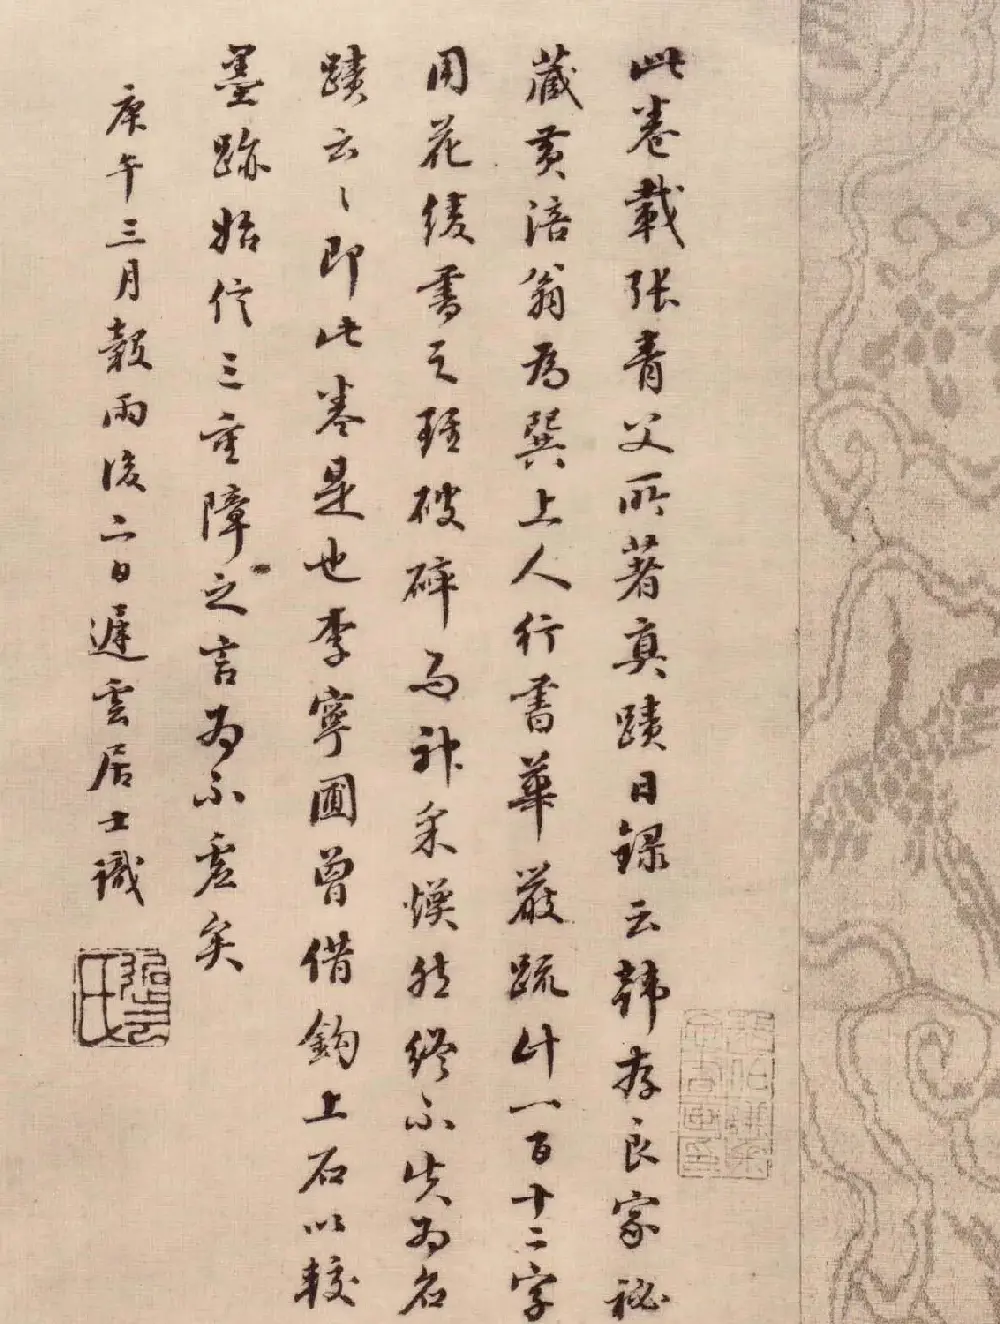 此卷載張青父所著真蹟日錄云韓存良家祕
藏黃涪翁為巽上人行書華嚴疏計一百十二字
用花綾書之雖破碎而神采煥然終不失為名
蹟云〻即此卷是也李寧圃曾借鈎上石以較
墨跡始信三重障之言為不虛矣
庚午三月穀雨後二日遲雲居士識